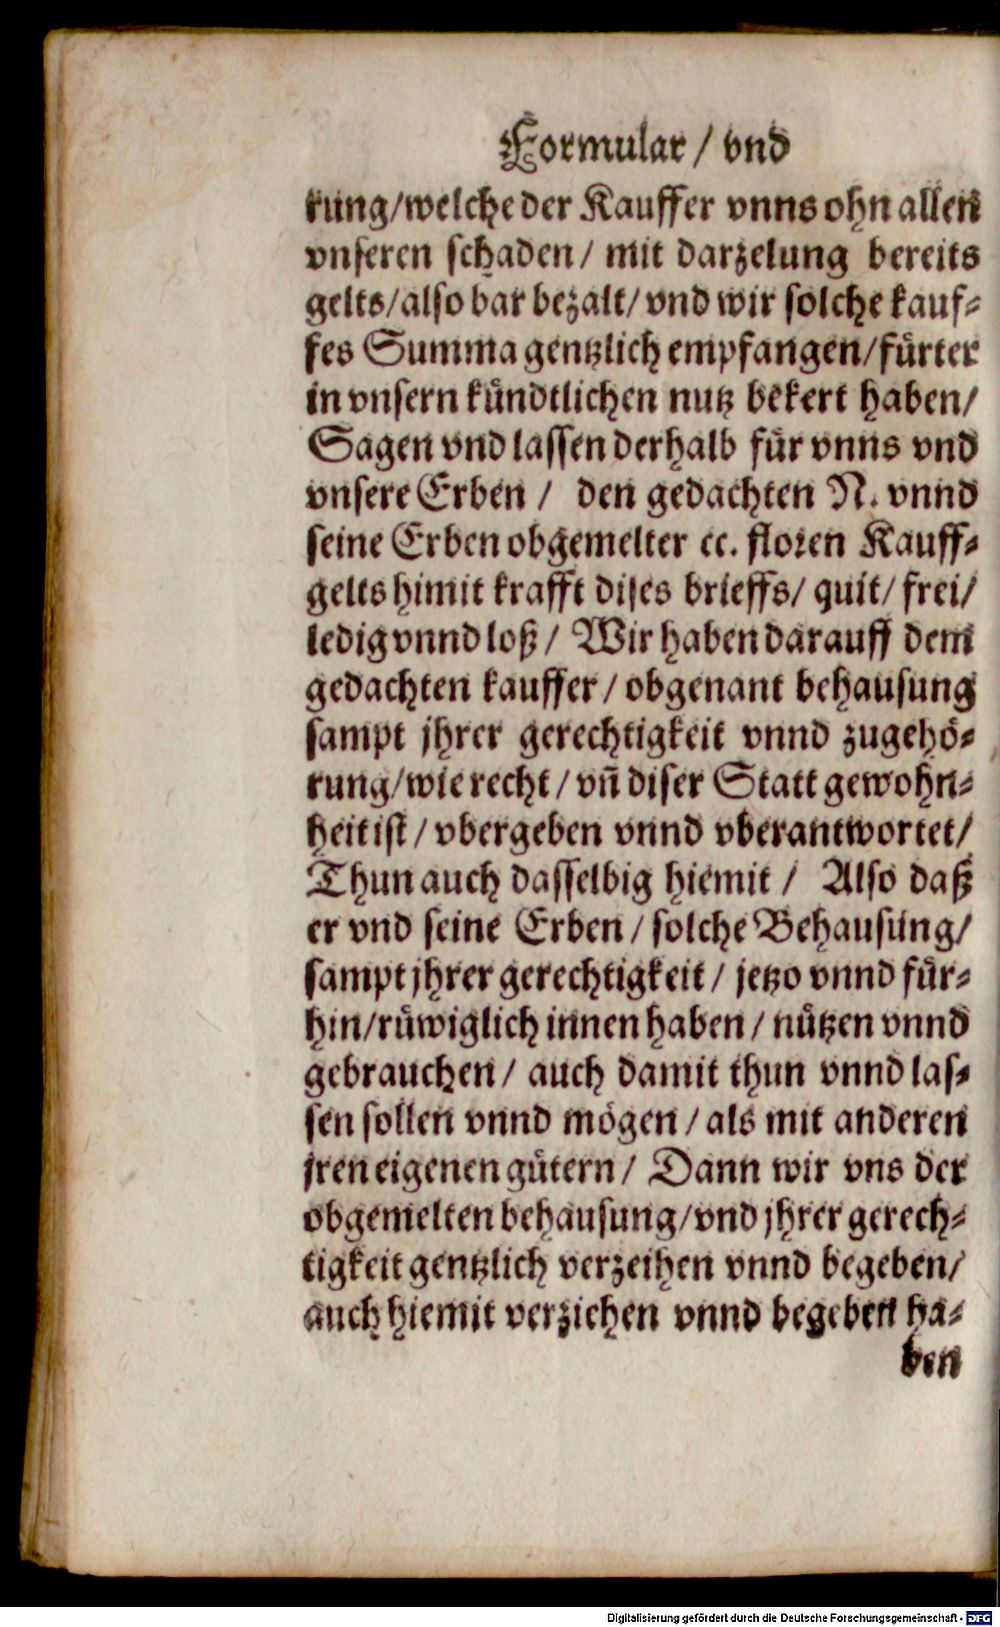 Formular / vnd
rung/welche der Kauffer vnns ohn allen
vnseren schaden / mit darzelung bereits
gelts/also bar bezalt/ vnd wir solche kauf⸗
fes Summa gentzlich empfangen/fürter
in vnsern kündtlichen nutz bekert haben/
Sagen vnd lassen derhalb für vnns vnd
vnsere Erben / den gedachten N. vnnd
seine Erben obgemelter ꝛc. floren Kauff⸗
gelts himit krafft dises brieffs/ quit/ frei/
ledig vnnd loß / Wir haben darauff dem
gedachten kauffer / obgenant behausung
sampt jhrer gerechtigkeit vnnd zugehö⸗
rung/wie recht / vñ diser Statt gewohn⸗
heit ist / vbergeben vnnd vberantwortet/
Thun auch dasselbig hiemit / Also daß
er vnd seine Erben / solche Behausung/
sampt jhrer gerechtigkeit / jetzo vnnd für⸗
hin/rüwiglich innen haben / nützen vnnd
gebrauchen / auch damit thun vnnd las⸗
sen sollen vnnd mögen / als mit anderen
jren eigenen gütern / Dann wir vns der
obgemelten behausung/vnd jhrer gerech⸗
tigkeit gentzlich verzeihen vnnd begeben/
auch hiemit verziehen vnnd begeben ha⸗
ben
Digitalisierung gefördert durch die Deutsche Forschungsgemeinschaft - DFG